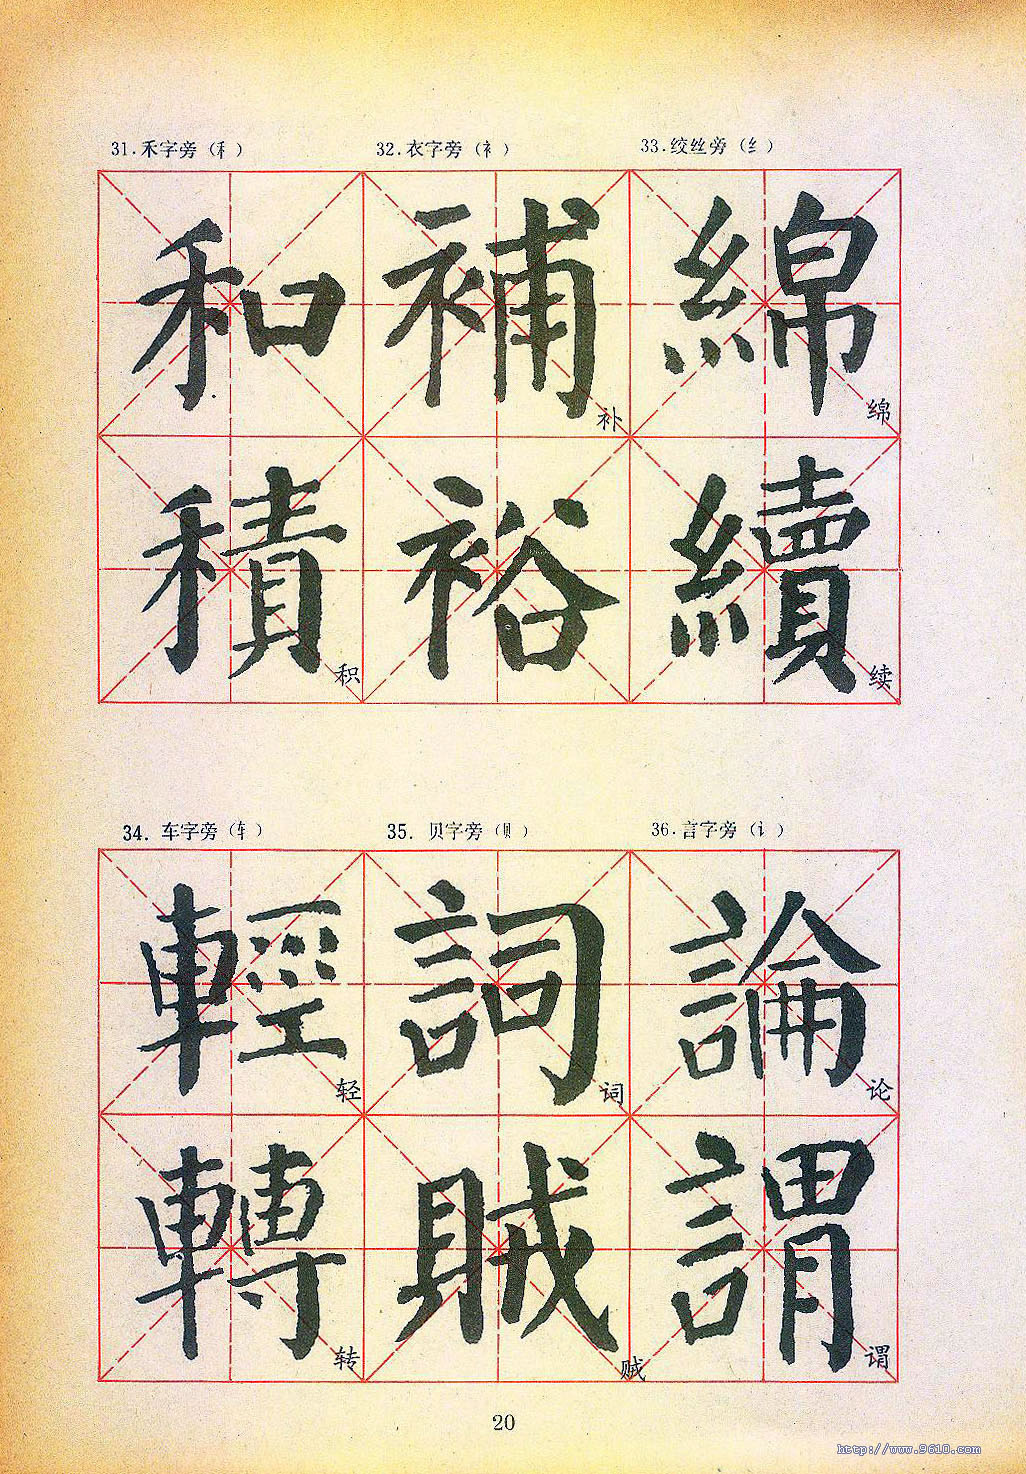 31.禾字旁（禾）
32.衣字旁（衤）
33.绞丝旁（纟）
和 補 綿
补 绵
積 裕 續
积 续
34. 车字旁（车）
35. 贝字旁（贝）
36.言字旁（讠）
輕 詞 論
轻 词 论
轉 賊 謂
转 贼 谓
20
http://www.9610.com